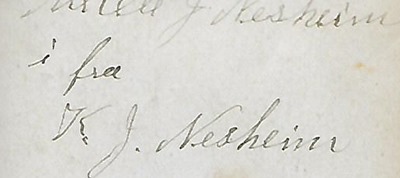 J. Nesheim
i fra
K. J. Nesheim